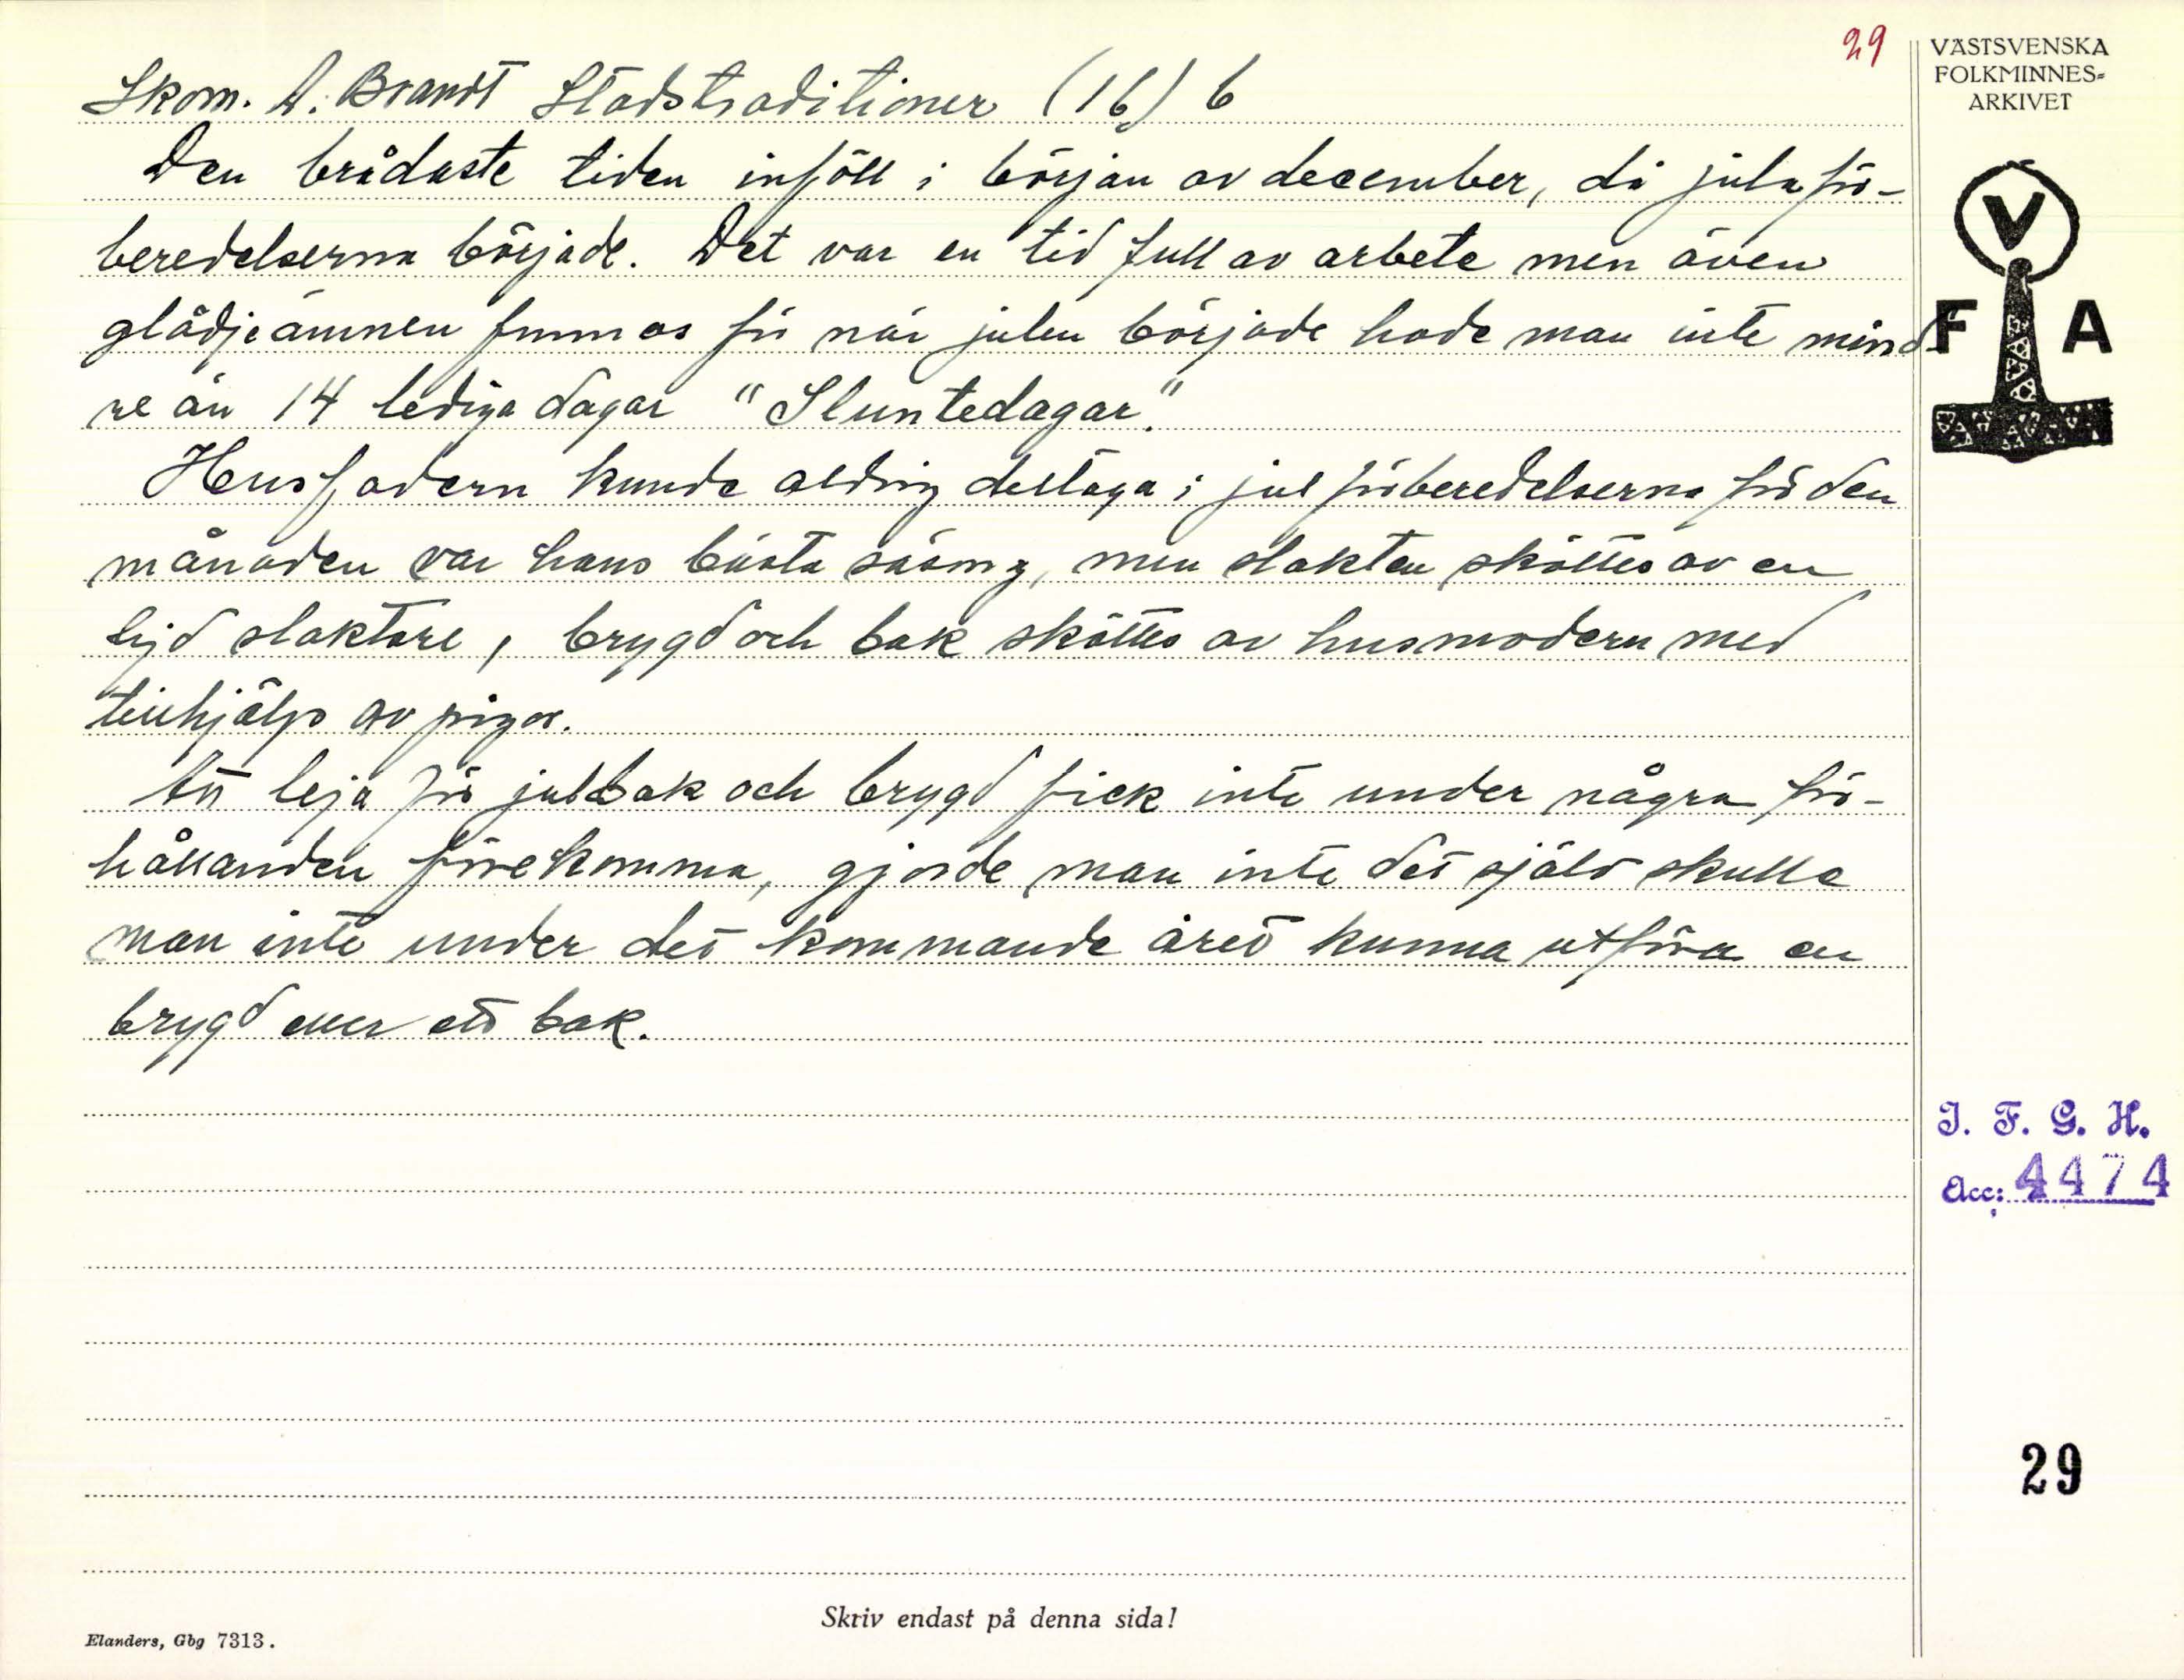 29
VÄSTSVENSKA
FOLKMINNES-
ARKIVET
Skom. A. Brandt Stadstraditioner (16) 6
Den brådaste tiden inföll i början av december, då julaför-
beredelserna började. Det var en tid full av arbete men även
glädjeämnen funnos för när julen började hade man inte mind-
re än 14 lediga dagar "Sluntedagar."
Husfadern kunde aldrig deltaga i julförberedelserna för den
månaden var hans bästa säsong, men slakten sköttes av en
lejd slaktare, brygd och bak sköttes av husmodern med
tillhjälp av pigor.
Att leja för julbak och brygd fick inte under några för-
hållanden förekomma, gjorde man inte det själv skulle
man inte under det kommande året kunna utföra en
brygd eller ett bak.
V
F A
I. F. G. H.
Acc: 4474
29
Skriv endast på denna sida!
Elanders, Gbg 7313.